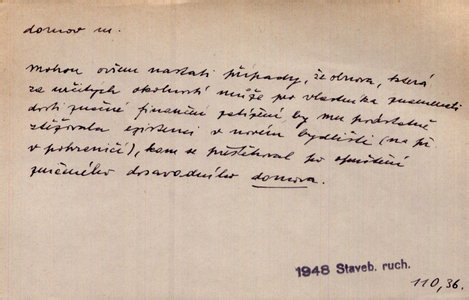 domov m.
mohou ovšem nastati případy, že obnova, která
za určitých okolností může pro vlastníka znamenati
dosti značné finanční zatížení by mu podstatně
ztěžovala existenci v novém bydlišti (na př.
v pohraničí), kam se přestěhoval po opuštění
zničeného dosavadního domova.
1948 Staveb. ruch.
110, 36.